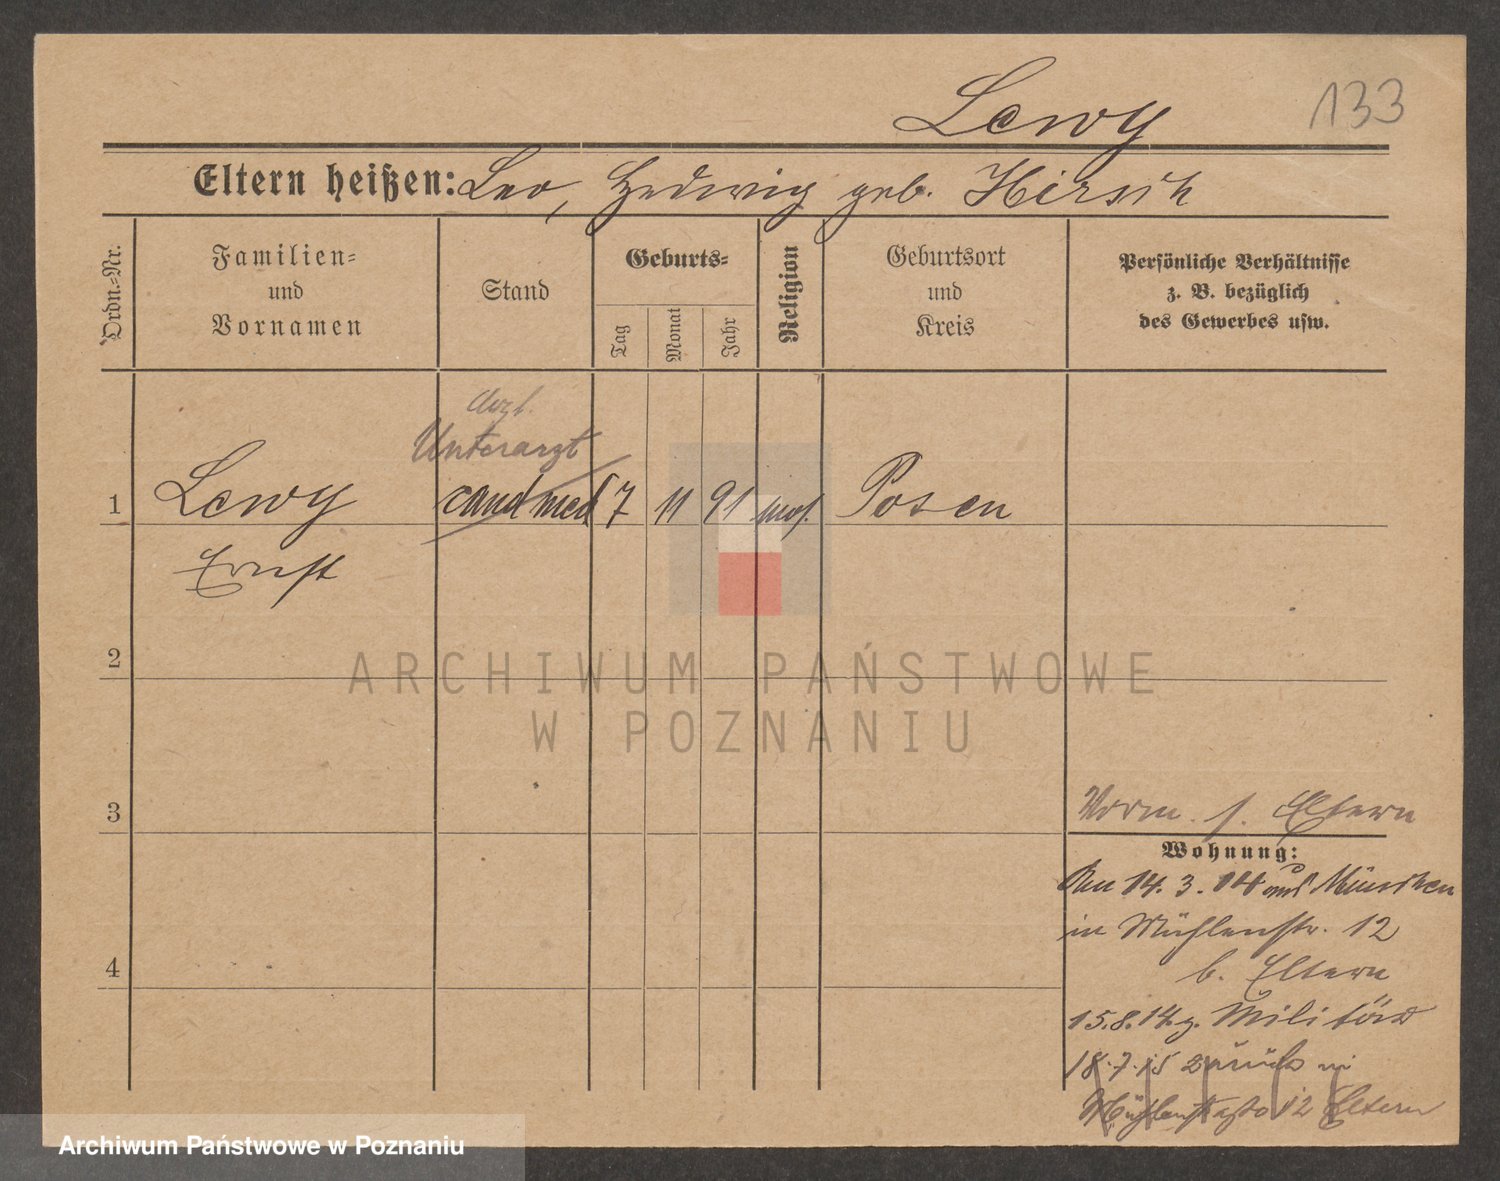 Lewy 133
Eltern heißen: Leo, Hedwig geb. Hirsch
Ordn.-Nr.
Familien-
und
Vornamen
Stand
Geburts-
Tag
Monat
Jahr
Religion
Geburtsort
und
Kreis
Persönliche Verhältnisse
z. B. bezüglich
des Gewerbes usw.
Unterarzt
1 Lewy cand med 7 11 91 mos. Posen
Ernst
2
ARCHIWUM PAŃSTWOWE
W POZNANIU
3
Vorm. s. Eltern
Wohnung:
Am 14. 3. 14 aus München
in Mühlenstr. 12
b. Eltern
4
15.8.14 z. Militär
18.7.15 zurück in
Mühlenstraße 12 Eltern
Archiwum Państwowe w Poznaniu